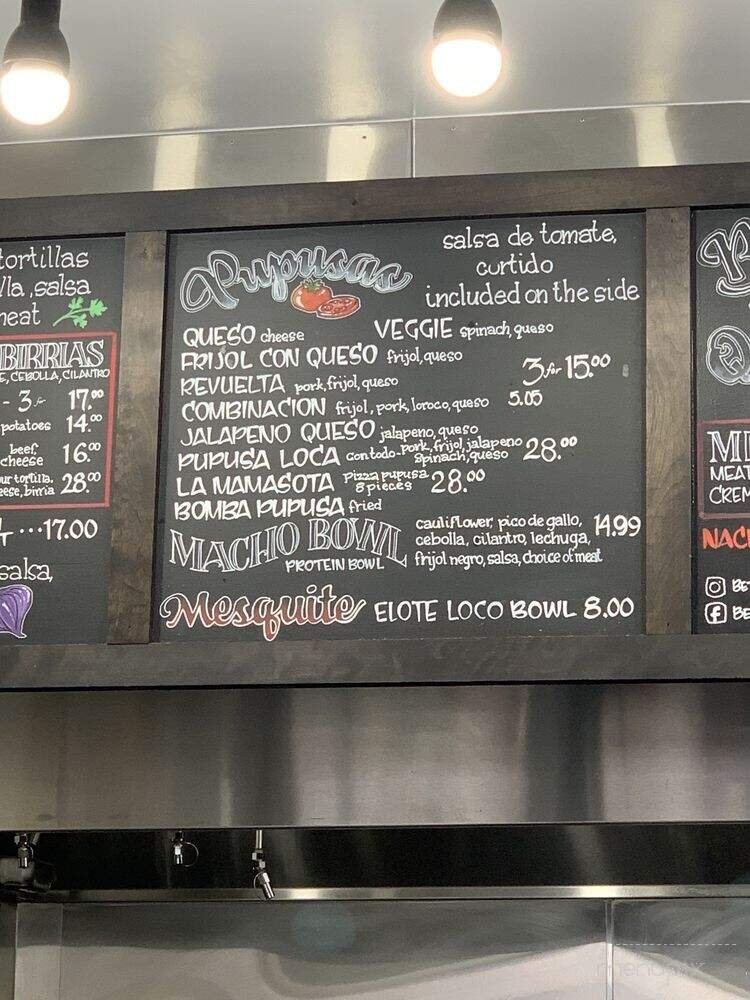 tortillas
lla, salsa
meat
BIRRIAS
E, CEBOLLA, CILANTRO
- 3 fr 17.00
potatoes 14.00
beef, cheese 16.00
ur tortilla, eese, birria 28.00
...17.00
salsa,
Pupusas
salsa de tomate,
curtido
included on the side
QUESO cheese VEGGIE spinach, queso
FRIJOL CON QUESO frijol, queso
REVUELTA pork, frijol, queso 3 for 15.00
COMBINACION frijol, pork, loroco, queso 5.05
JALAPENO QUESO jalapeno, queso
PUPUSA LOCA con todo-pork, frijol, jalapeno spinach, queso 28.00
LA MAMASOTA pizza pupusa 8 pieces 28.00
BOMBA PUPUSA fried
MACHO BOWL
PROTEIN BOWL
cauliflower, pico de gallo, 14.99
cebolla, cilantro, lechuga,
frijol negro, salsa, choice of meat
Mesquite ELOTE LOCO BOWL 8.00
MEAT
CREM
NAC
BE
BE